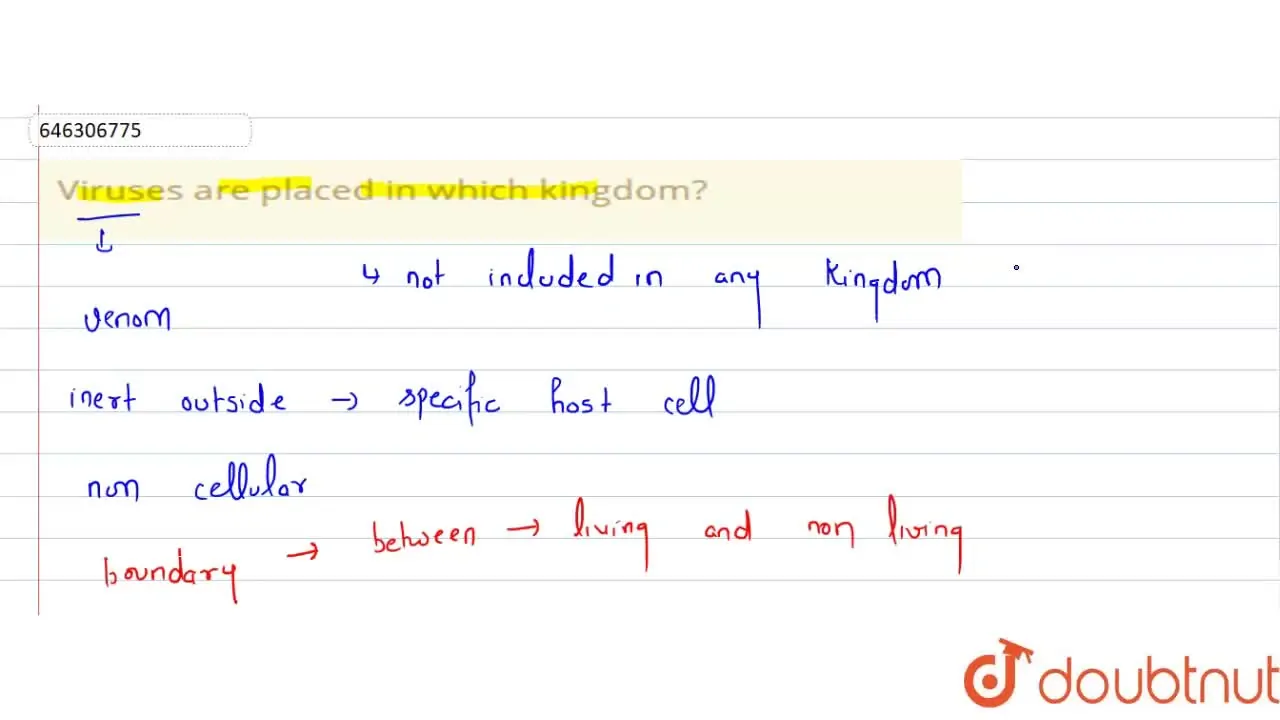 646306775
Viruses are placed in which kingdom?
↳ not included in any Kingdom
venom
inert outside → specific host cell
non cellular
boundary → between → living and non living
doubtnut